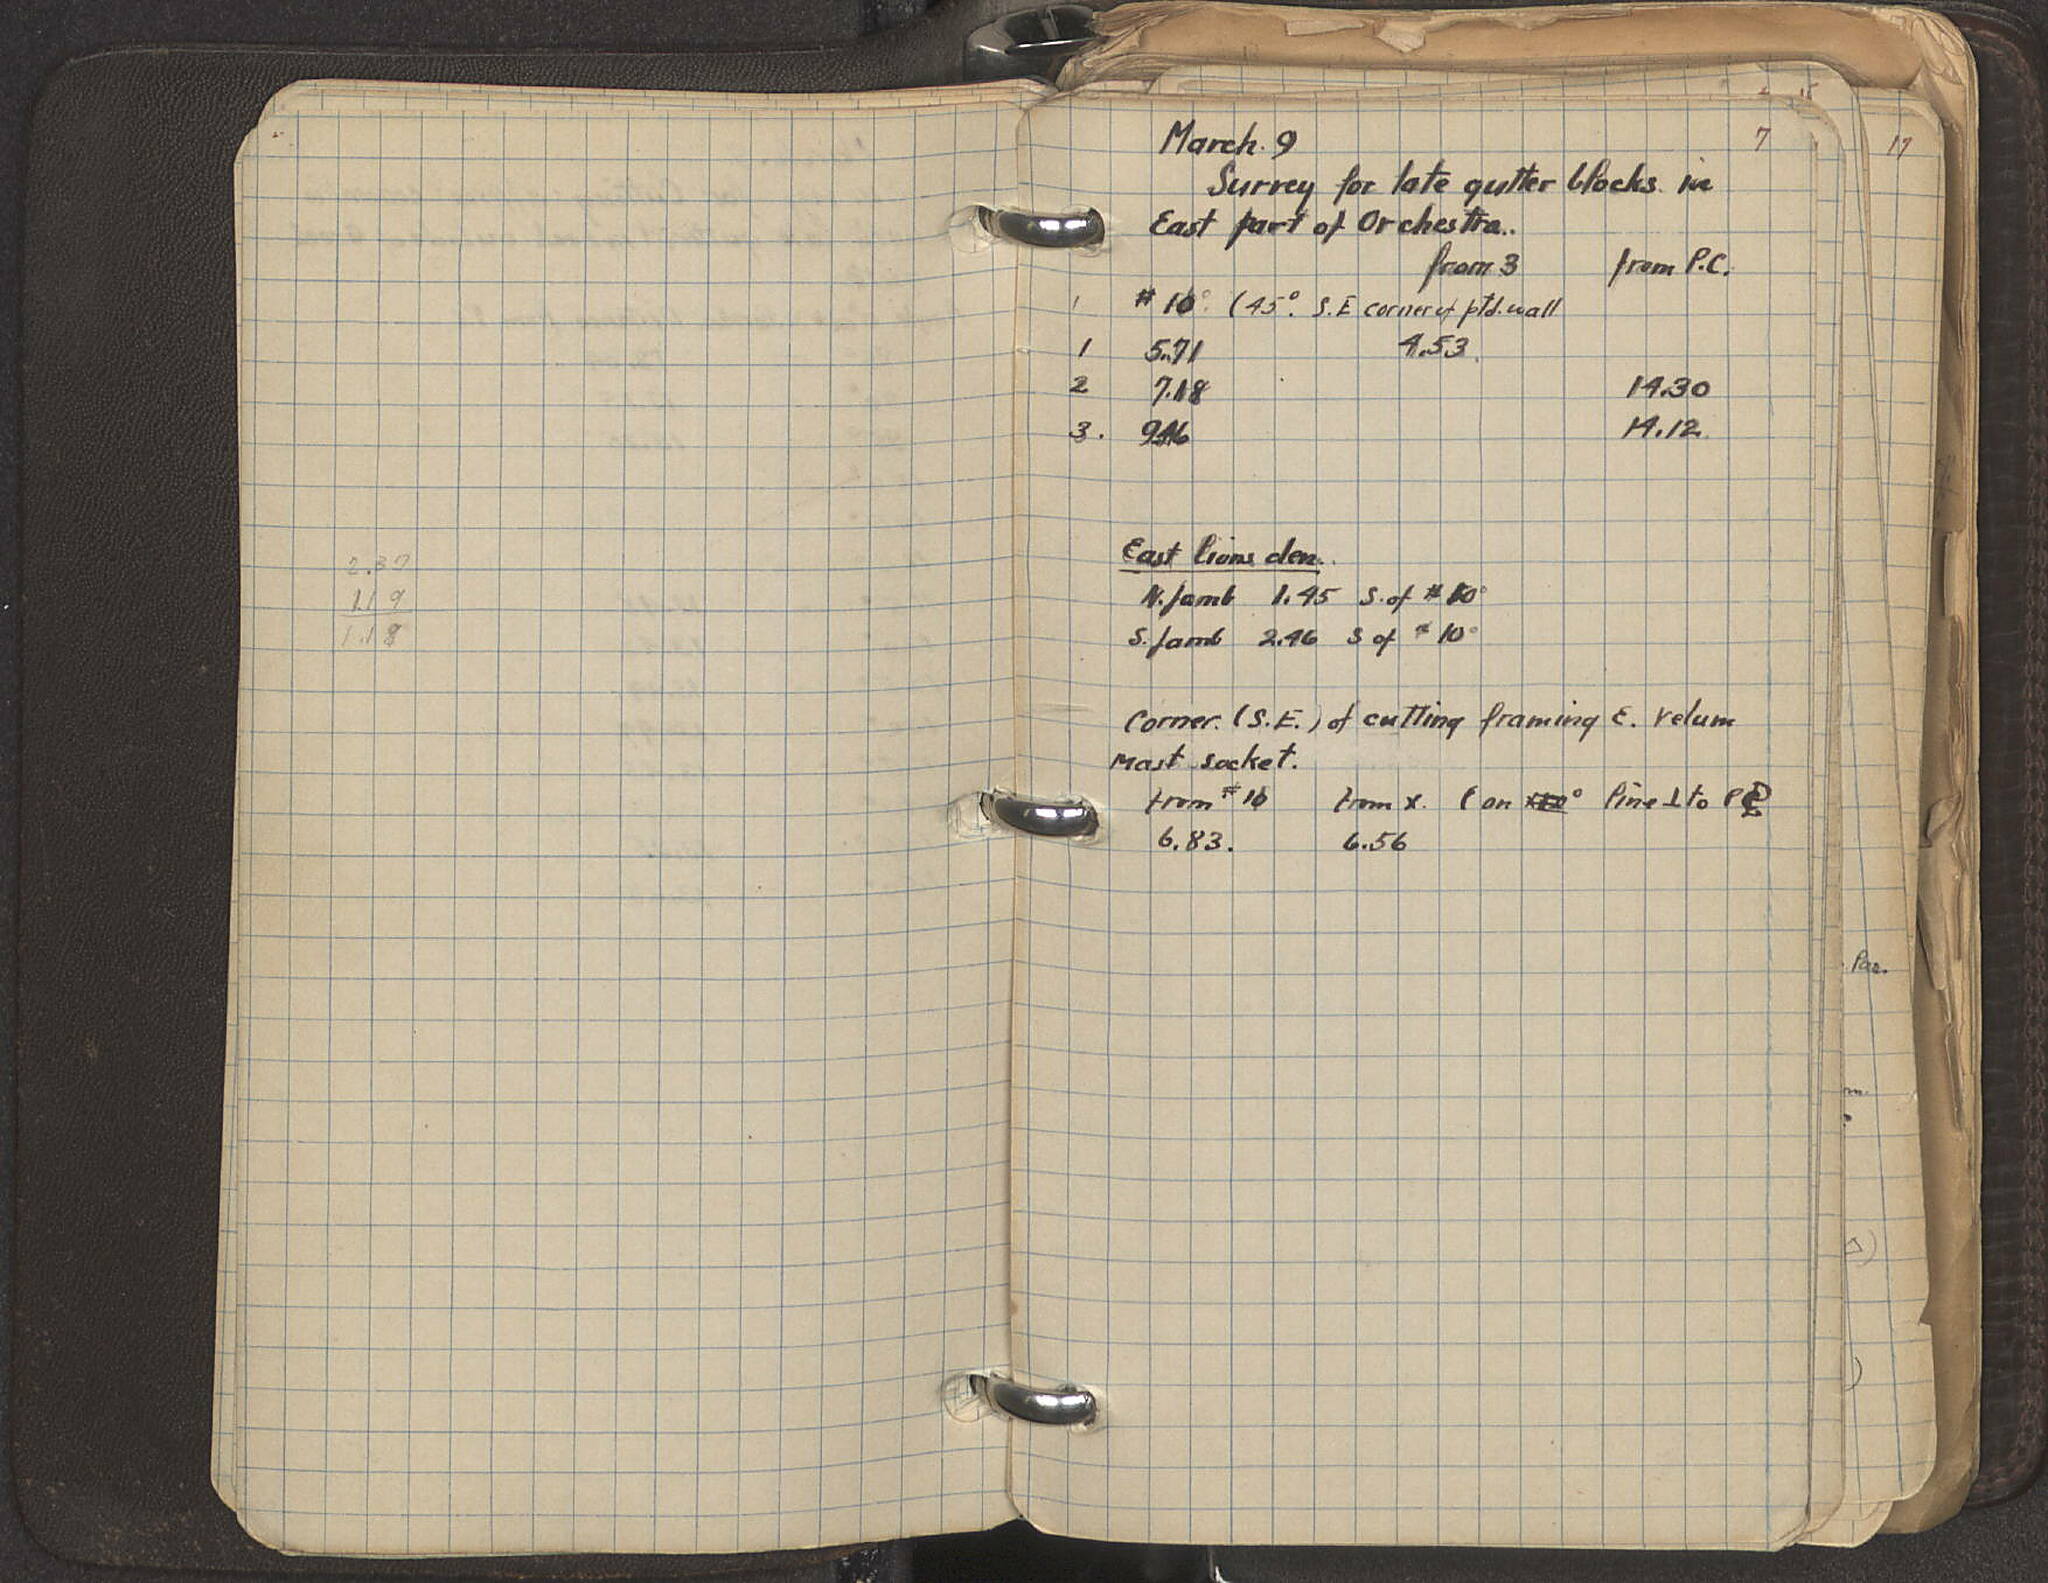 2.37
1.19
1.18
7
17
March. 9
Survey for late gutter blocks in
East part of Orchestra.
from 3 from P.C.
1 # 10° (45° S.E corner of ptd. wall
1 5.71 4.53
2 7.18 14.30
3. 14.12
East lions den.
N. jamb 1.45 S. of # 10°
S. jamb 2.46 S of # 10°
Corner (S.E.) of cutting framing E. velum
Mast socket.
from # 10 from x. (on line ⊥ to
6.83. 6.56
Par.